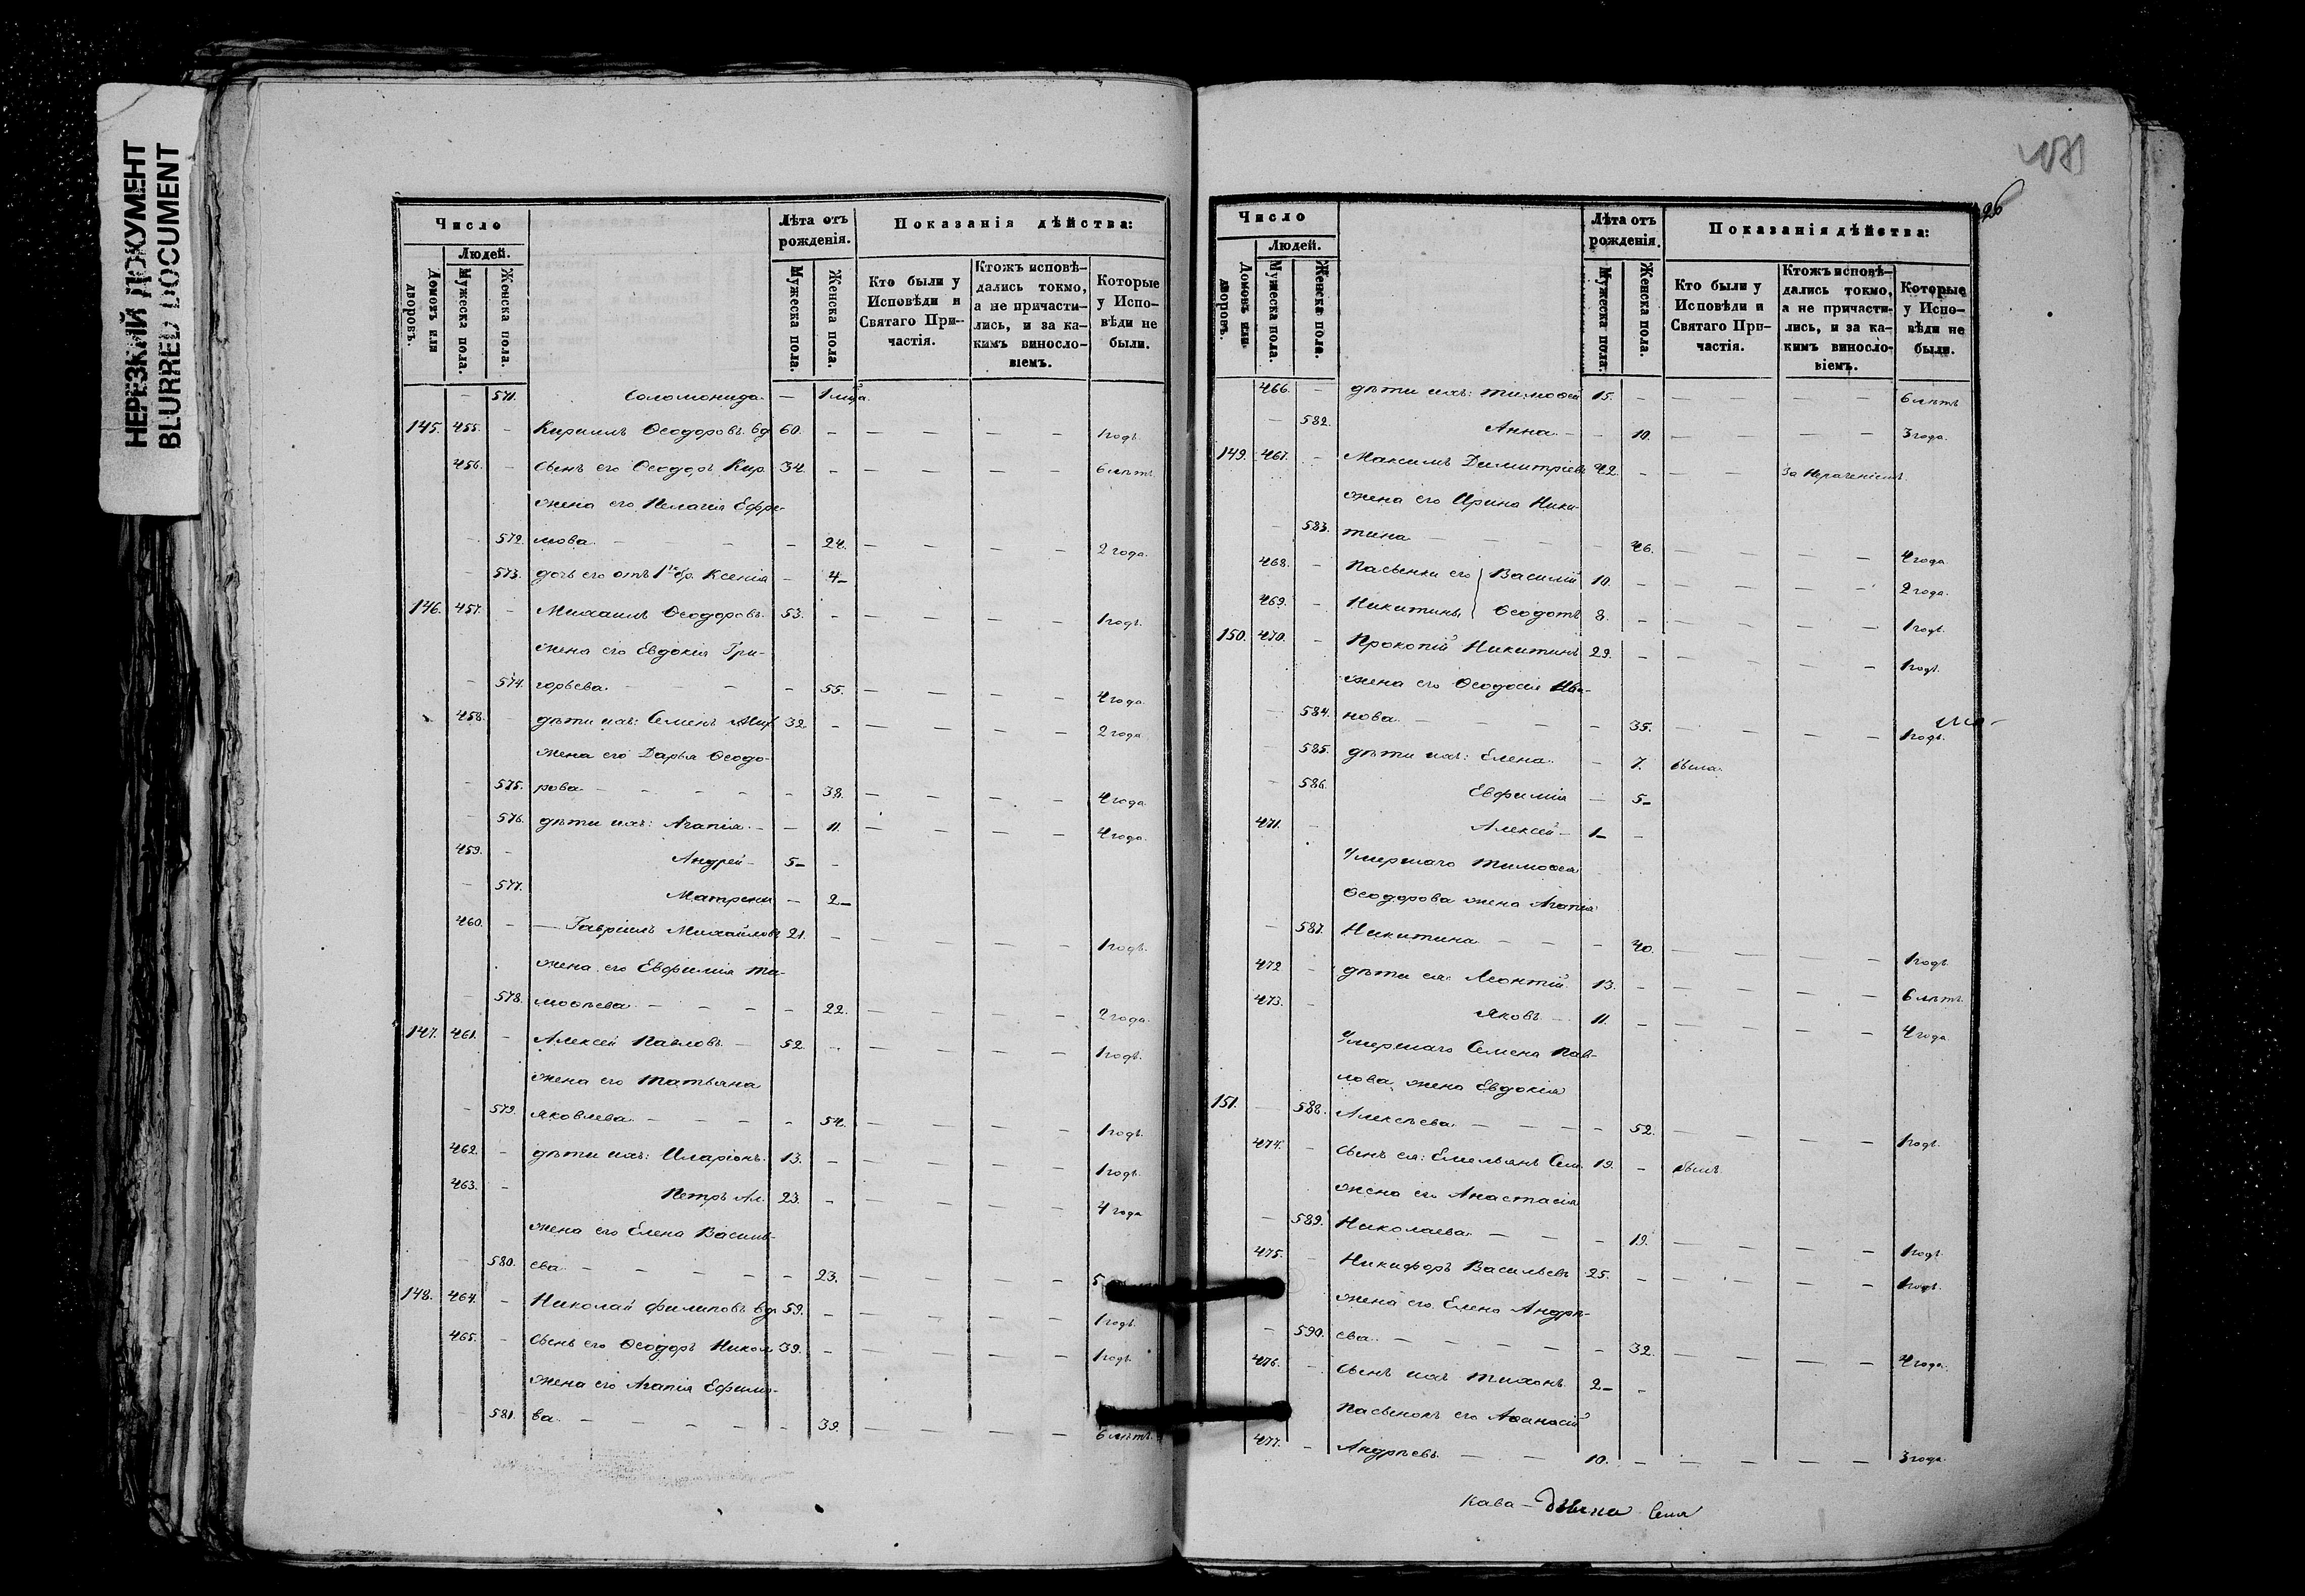 НЕРЕЗКИЙ ДОКУМЕНТ
BLURRED DOCUMENT
Число
Людей.
Домовъ или дворовъ.
Мужеска пола.
Женска пола.
Лѣта отъ рожденія.
Мужеска пола.
Женска пола.
Показанія дѣйства:
Кто были у Исповѣди и Святаго При-частія.
Ктожъ исповѣ-дались токмо, а не причасти-лись, и за ка-кимъ виносло-віемъ.
Которые у Испо-вѣди не были.
571. Соломонида. — 1 мѣца.
145. 455. - Кириллъ Ѳеодоровъ вд 60. - — — — 1 годъ.
456. - Сынъ его Ѳеодоръ Кир. 34. - — — — 6 лѣтъ
жена его Пелагія Ефре-
572. мова. — — — — 24. — — — — 2 года.
573. дочь его отъ 1го бр. Ксенія — 4—
146. 457. - Михаилъ Ѳеодоровъ. 53. - — — — — 1 годъ.
жена его Евдокія Гри-
574. горьева. — — — — 55. — — — — 4 года.
458. - дѣти ихъ: Семенъ Мих. 32 - — — — — 2 года
жена его Дарья Ѳеодо-
575. рова — — — — — 38. — — — — 4 года.
576. дѣти ихъ: Агапія. — — 11. — — — — 4 года.
459. - Андрей — 5— -
577. Матрена — 2—
460. - — Гавріилъ Михайловъ 21. - — — — — 1 годъ.
жена его Евфимія Ти-
578. моѳеева — — — — 22. — — — — 2 года.
147. 461. - Алексей Павловъ. — 52. - — — — — 1 годъ.
жена его Татьяна
579. Яковлева. — — — — 54. — — — — 1 годъ.
462. - дѣти ихъ: Иларіонъ. 13. - — — — — 1 годъ.
463. - Петръ Ал. 23. - — — — — 4 года
жена его Елена Василь-
580. ева. — — — — — 23. — — — — 5
148. 464. - Николай Филиповъ вд. 59. - — — — 1 годъ.
465. - Сынъ его Ѳеодоръ Никол 39. - — — — — 1 годъ.
жена его Агапія Ефимо-
581. ва. — — — — — 39. — — — — 6 лѣтъ.
26
Число
Людей.
Домовъ или дворовъ.
Мужеска пола.
Женска пола.
Лѣта отъ рожденія.
Мужеска пола.
Женска пола.
Показанія дѣйства:
Кто были у Исповѣди и Святаго При-частія.
Ктожъ исповѣ-дались токмо, а не причасти-лись, и за ка-кимъ виносло-віемъ.
Которые у Испо-вѣди не были.
466. — дѣти ихъ: Тимоѳей 15. - — — — 6 лѣтъ
582. Анна. — — 10. — — — 3 года.
149. 467. - Максимъ Димитріевъ 42. - — —
жена его Ирина Ники-
583. тина — — — — 46. — — — — 4 года
468. - Пасынки его Василій 10. - — — — 2 года.
469. - Никитины Ѳеодотъ 8. - — — — — 1 годъ.
150. 470. - Прокопій Никитинъ 29. - — — — — 1 годъ.
жена его Ѳеодосія Ива-
584. нова. — — — — 35. — — — — 1 годъ.
585. дѣти ихъ: Елена. — 7. была.
586. Евфимія — 5—
471. - Алексей — 1— -
Умершаго Тимоѳея
Ѳеодорова жена Агапія
587. Никитина — — — 40. — — — — 1 годъ.
472 - дѣти ея: Леонтій. 13. - — — — — 6 лѣтъ.
473. - Яковъ. — 11. - — — — — 4 года
Умершаго Семена Пав-
лова жена Евдокія
151. 588. Алексеева. — — — — 52. — — — — 1 годъ.
474. - Сынъ ея: Емельянъ Сем. 19. - былъ
жена его Анастасія
589. Николаева. — — — 19. — — — — 1 годъ.
475. - Никифоръ Васильевъ 25. - — — — — 1 годъ.
жена его Елена Андре-
590. ева. — — — — — 32. — — — — 4 года.
476. - Сынъ ихъ Тихонъ. 2— -
Пасынокъ его Аѳанасій
477. - Андреевъ. — — 10. - — — — — 3 года.